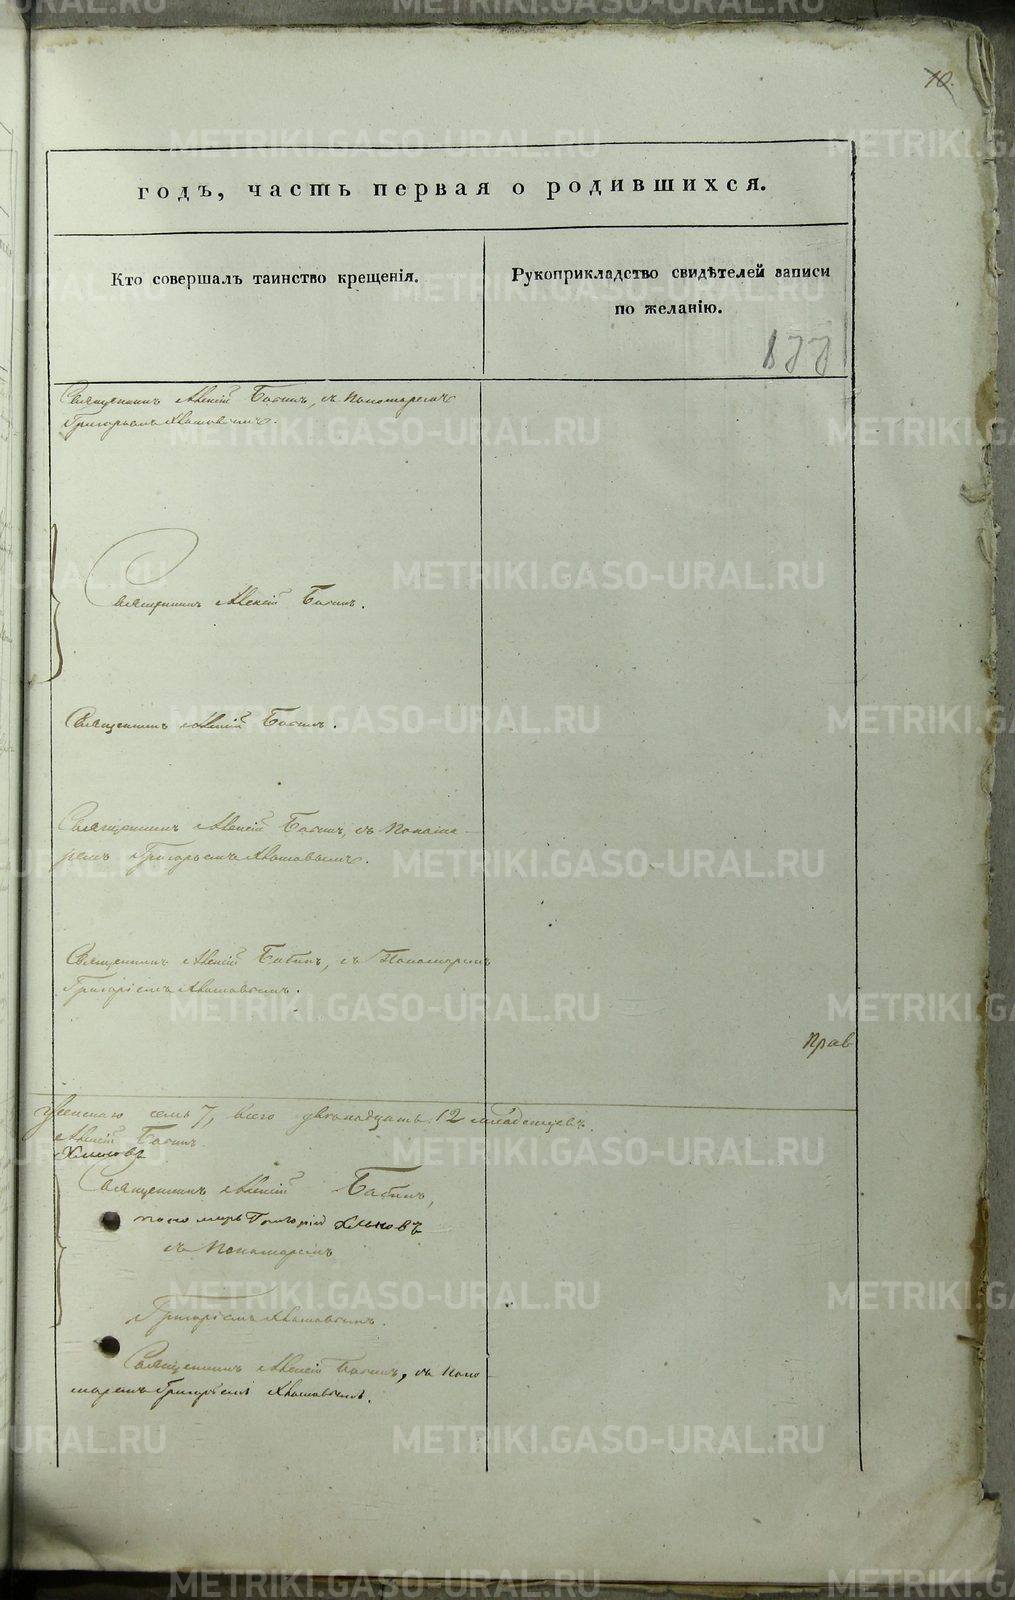 10.
годъ, часть первая о родившихся.
Кто совершалъ таинство крещенія.
Рукоприкладство свидѣтелей записи
по желанію.
177
Священникъ Алексій Бабинъ, съ Пономаремъ
Григорьемъ Хлыновымъ.
Священникъ Алексій Бабинъ.
Священникъ Алексій Бабинъ.
Священникъ Алексій Бабинъ, съ Понома-
ремъ Григорьемъ Хлыновымъ.
Священникъ Алексій Бабинъ, съ Пономаремъ
Григоріемъ Хлыновымъ.
Прав
женскаго семь 7, всего двенадцать 12 младенцевъ.
Алексій Бабинъ
Хлыновъ
Священникъ Алексій Бабинъ,
Григорій Хлыновъ
съ Пономаремъ
Григоріемъ Хлыновымъ.
Священникъ Алексій Бабинъ, съ Поно-
маремъ Григоріемъ Хлыновымъ.
METRIKI.GASO-URAL.RU